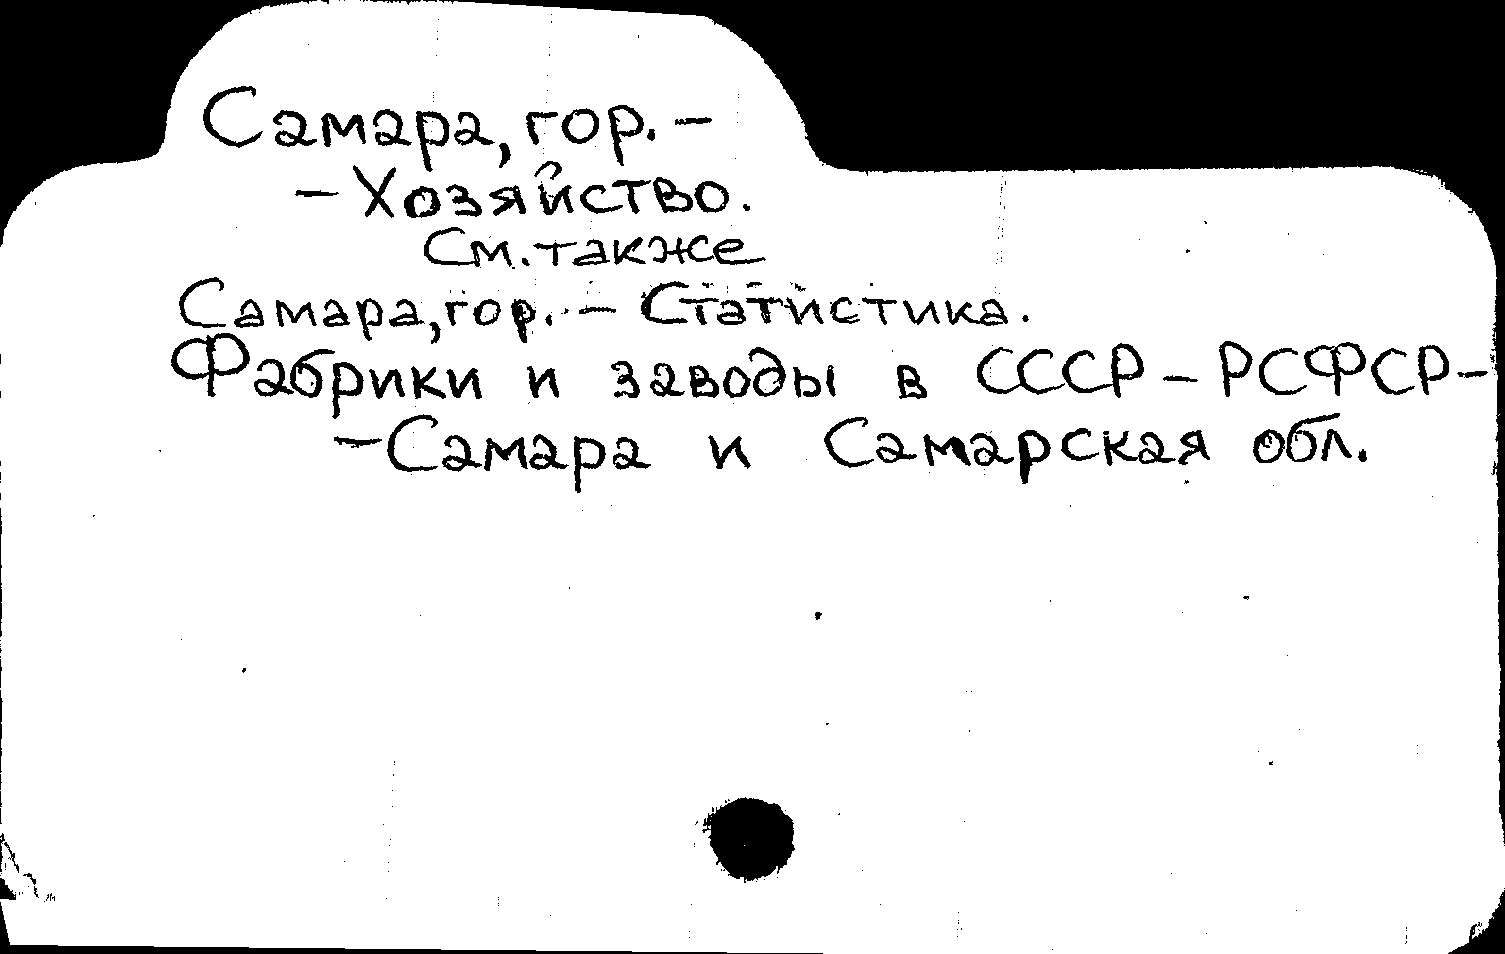 Самара, гор. –
– Хозяйство.
См. также
Самара, гор. – Статистика.
Фабрики и заводы в СССР – РСФСР –
– Самара и Самарская обл.